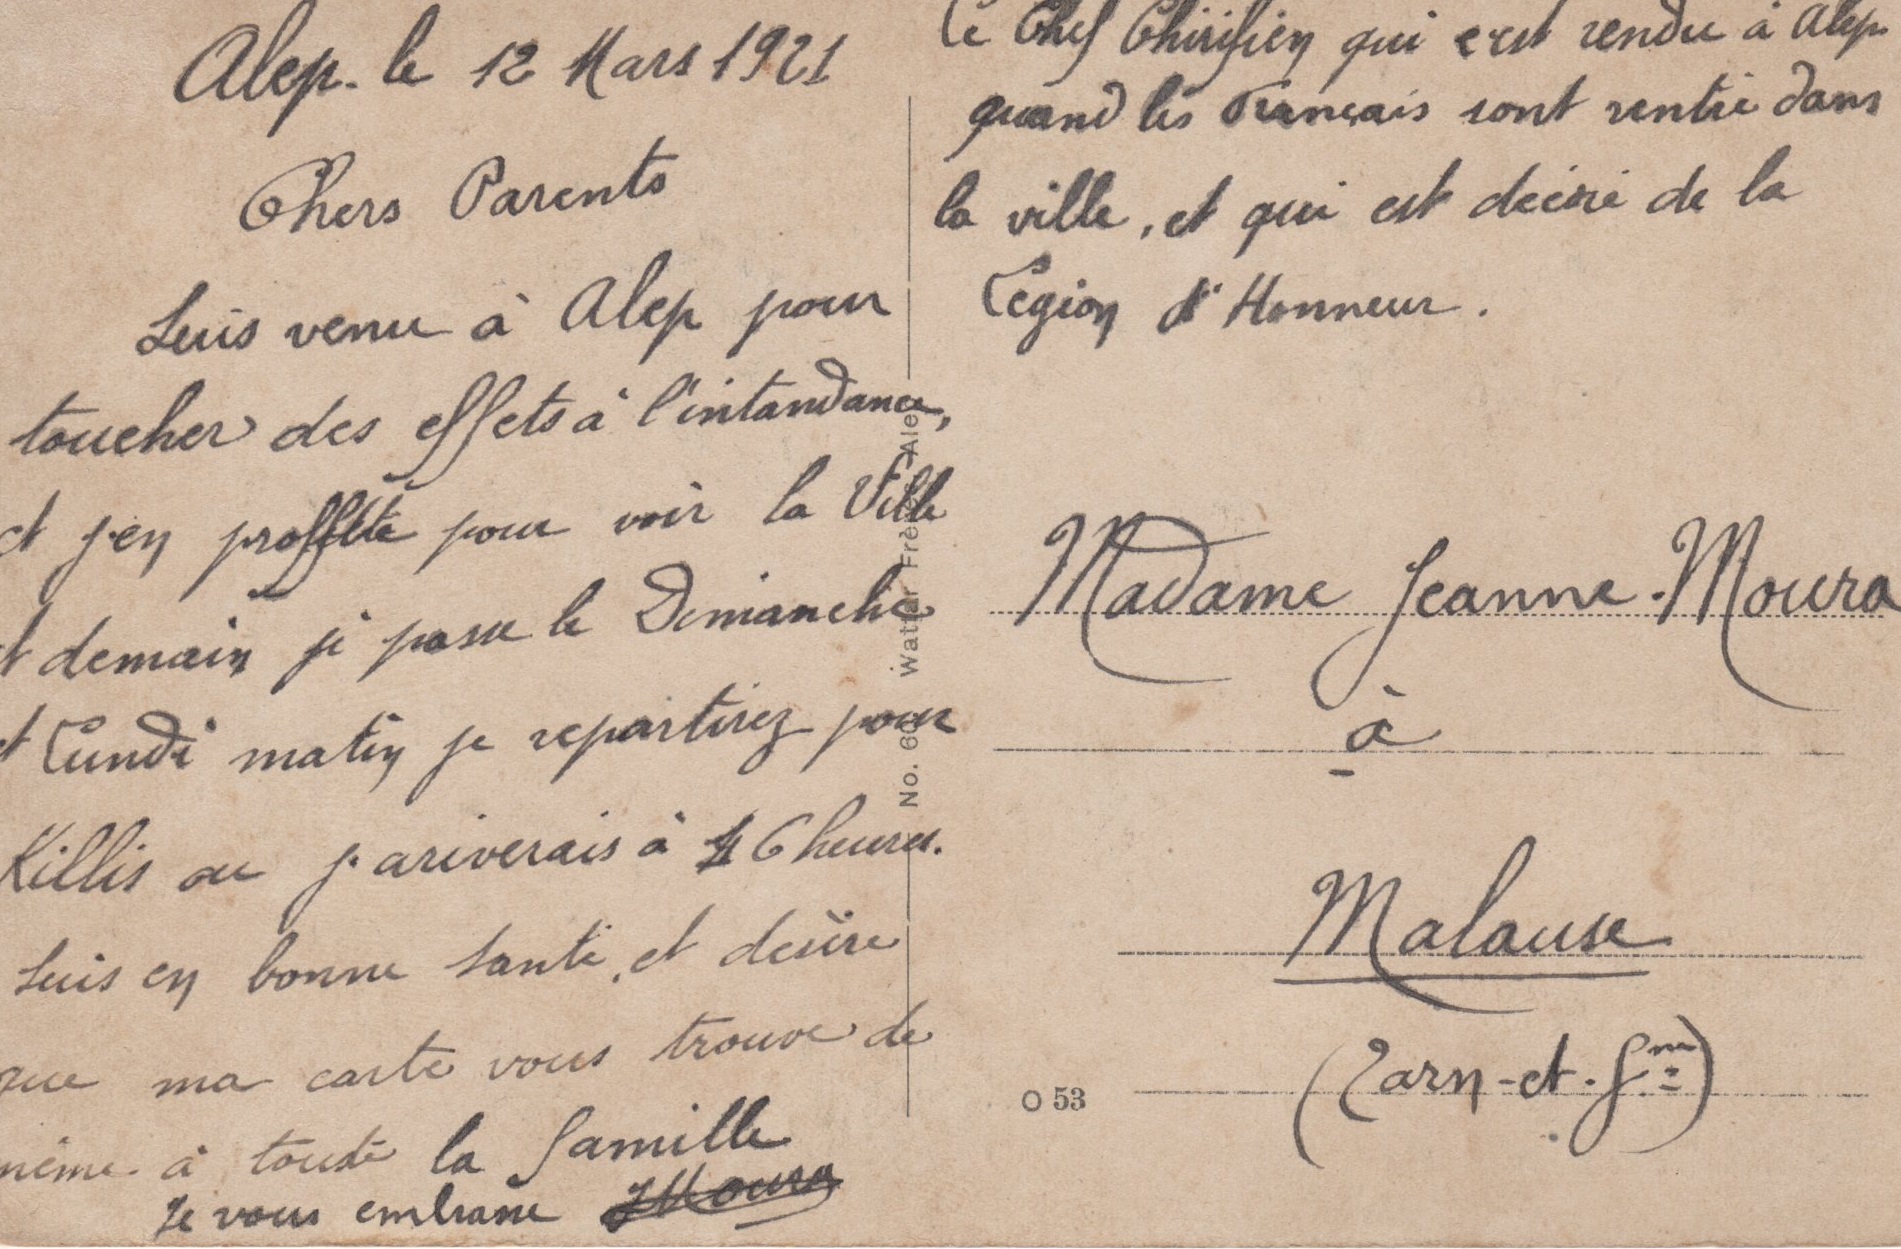 Alep. le 12 Mars 1921
Chers Parents
Suis venu à Alep pour
toucher des effets à l'intandance,
et j'en proffite pour voir la Ville
et demain je passe le Dimanche
et Lundi matin je repartirez pour
Killis ou j'ariverais à 16 heures.
Suis en bonne santé, et desire
que ma carte vous trouve de
même à toute la famille
Je vous embrasse Moura
Le Chef Chirifien qui c'est rendu à Alep
quand les Français sont rentré dans
la ville, et qui est décoré de la
Légion d'Honneur.
No. 60 Wattar Frères Alep
Madame Jeanne Moura
à
Malause
(Tarn-et-Gne)
O 53